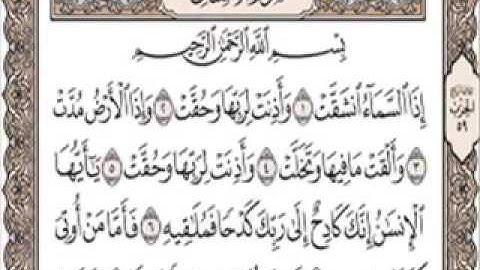 بِسْمِ اللَّهِ الرَّحْمَٰنِ الرَّحِيمِ
إِذَا السَّمَاءُ انشَقَّتْ ١ وَأَذِنَتْ لِرَبِّهَا وَحُقَّتْ ٢ وَإِذَا الْأَرْضُ مُدَّتْ
٣ وَأَلْقَتْ مَا فِيهَا وَتَخَلَّتْ ٤ وَأَذِنَتْ لِرَبِّهَا وَحُقَّتْ ٥ يَا أَيُّهَا
الْإِنسَانُ إِنَّكَ كَادِحٌ إِلَىٰ رَبِّكَ كَدْحًا فَمُلَاقِيهِ ٦ فَأَمَّا مَنْ أُوتِيَ
الحزب
٥٩